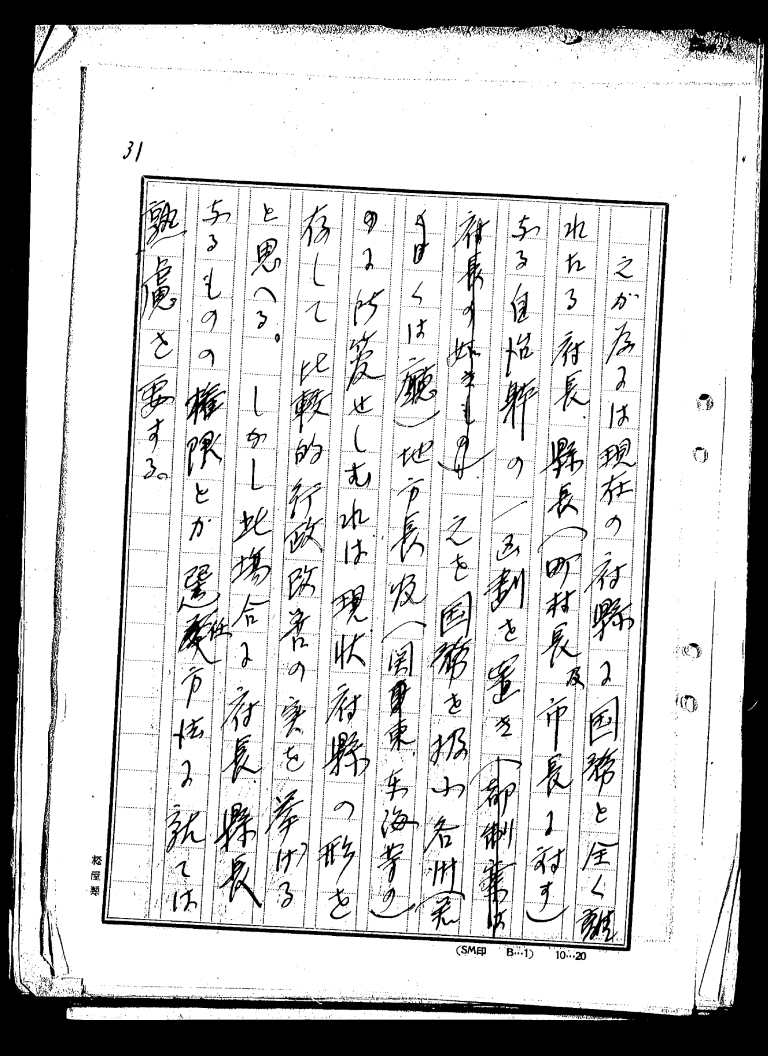 31
之が為には現在の府縣に国務と全く離
れたる府長、縣長(町村長及市長に対す)
なる自治体の一区劃を置き(都制案は
府長の如きもの)、之を国務を扱ふ各州(若
くは廳)地方長官(関東、東海等の)
のに所管せしむれば現状府縣の形を
存して比較的行政改善の実を挙げる
と思へる。しかし此場合に府長、縣長
なるものの権限とか選任方法に就ては
熟慮を要する。
松屋製
(SM印 B…1) 10…20